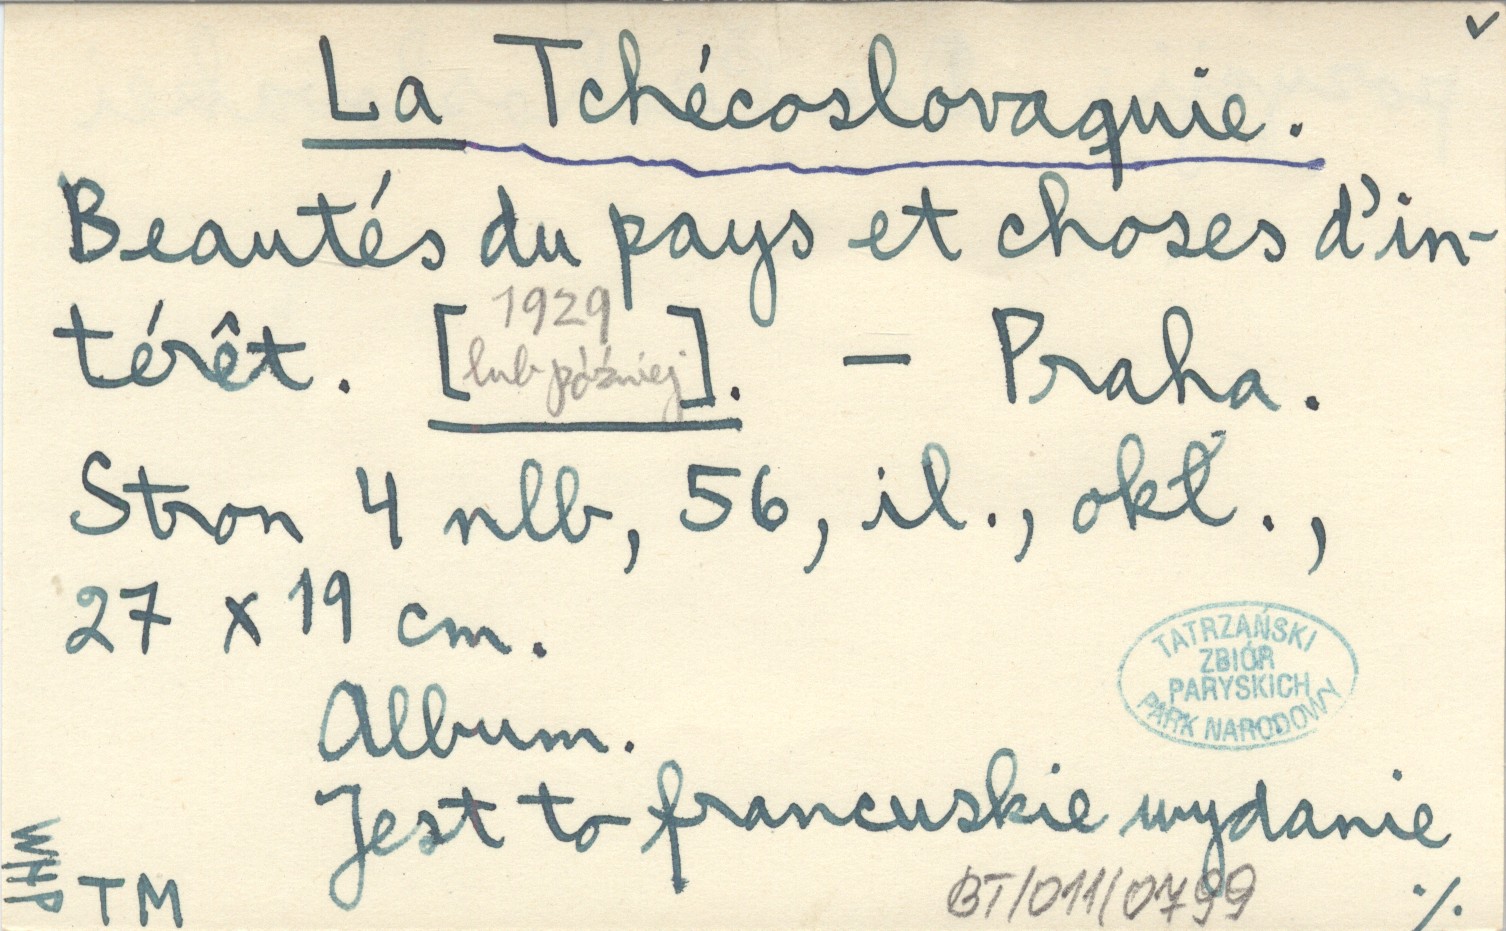 ✓
La Tchécoslovaquie.
Beautés du pays et choses d'in-
térêt. [1929 lub później]. — Praha.
Stron 4 nlb, 56, il., okł.,
27 x 19 cm.
TATRZAŃSKI
ZBIÓR
PARYSKICH
PARK NARODOWY
Album.
Jest to francuskie wydanie
WHP
TM
BT/011/0799
·/.